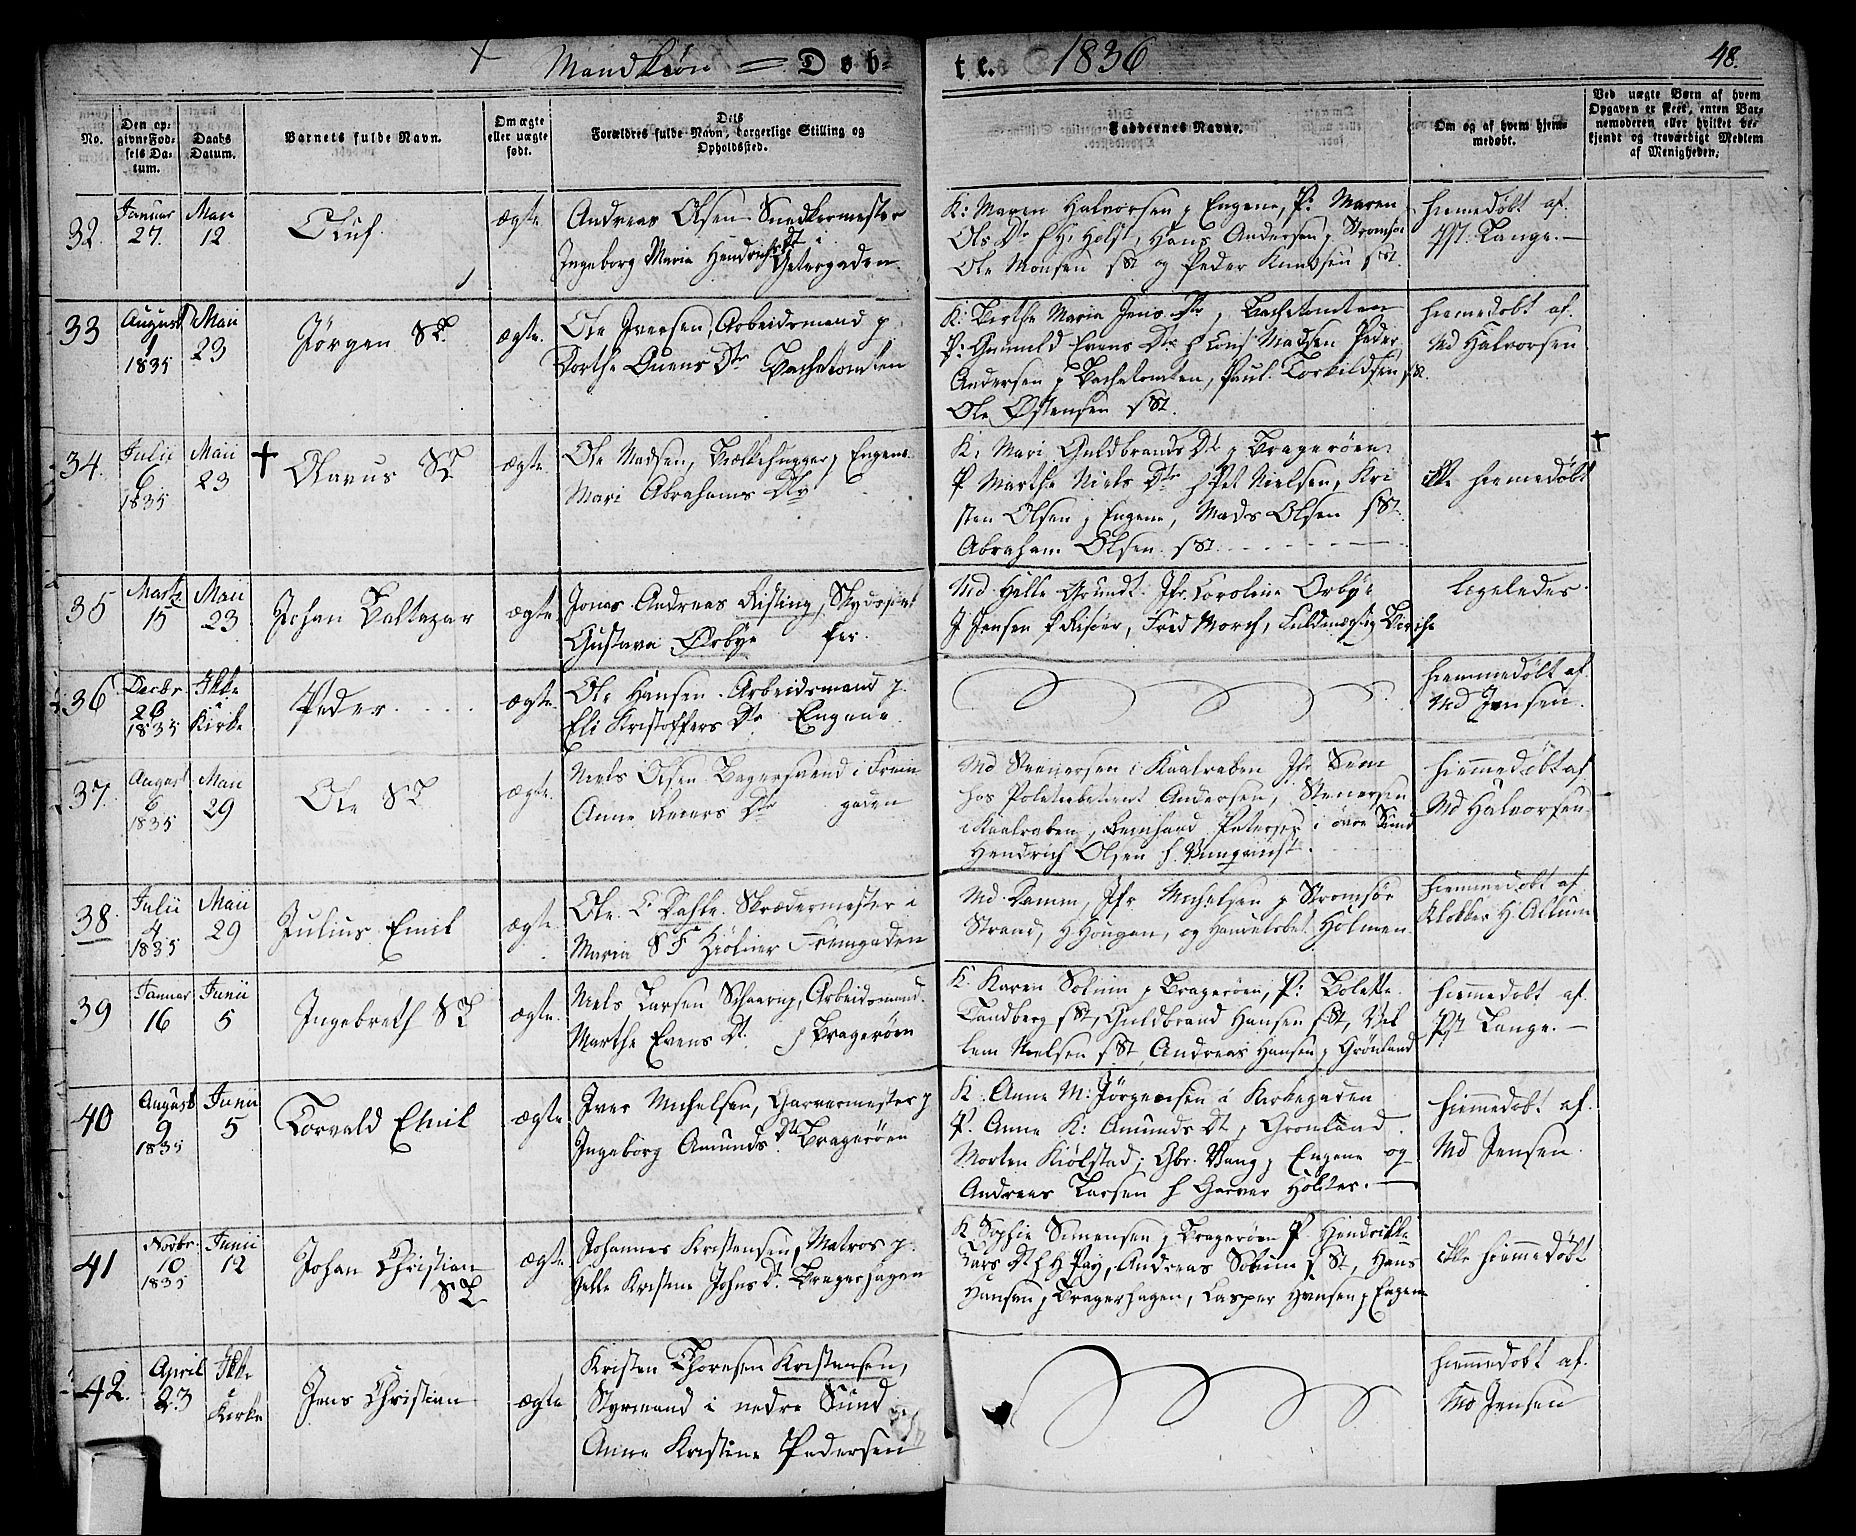 Mandkiøn = Døb-
te. 1836
48.
No.
Den op-
givne Fød-
sels Da-
tum.
Daabs
Datum.
Barnets fulde Navn.
Om ægte
eller uægte
født.
Dets
Forældres fulde Navn, borgerlige Stilling og
Opholdssted.
Faddernes Navne.
Om og af hvem hjem-
medøbt.
Ved uægte Børn af hvem
Opgaven er skeet, enten Bar-
nemoderen eller hvilket be-
kjendt og troværdigt Medlem
af Menigheden.
32.
Januar
27.
Maii
12
Oluf.
ægte
Andreas Olsen Snedkermester
Ingeborg Maria Hendrichs Dt i Getergaden.
K: Maren Halvorsen p Engene, P: Maren
Ols Dr f H: Holst, Hans Andersen p Stromsøe
Ole Monsen s St og Peder Knudsen s St.
Hiemedøbt af.
Pst: Lange.
33
August
1
1835
Maii
23
Jörgen
ægte.
Ole Iversen, Arbeidsmand p.
Dorthe Ouens Dtr Bachetomten
K: Berthe Maria Jens Dtr p Bachetomten
P: Gunnild Evens Dtr f Lars Madsen Peder
Andersen p Bachetomten, Paul Torkildsen s St.
Ole Østensen s St.
Hiemedøbt af.
Md Halvorsen
34.
Julii
6
1835
Maii
23
+ Olavus
ægte.
Ole Madsen, Bielkehugger p Engene
Mari Abrahams Dtr
K: Mari Guldbrands Dt p Bragerøen
P Marthe Niels Dtr f Pet Nielsen, Kri
sten Olsen p Engene, Mads Olsen s St.
Abraham Olsen s St.
ikke Hiemedøbt
35
Martz
15
Maii
23
Johan Baltazar
ægte
Jonas Andreas Risting, Skydsskaf
Gustava Ørbye fer.
Md Helle Grundt. Jfr. Caroline Orbye
J Jensen f Risøer, Fred Morch, Fuldmægtig Birch
ligeledes.
36
Decbr.
26
1835
Ikke
i
Kirke
Peder.
ægte.
Ole Hansen. Arbeidsmand p.
Eli Kristoffers Dtr Engene.
Hiemmedøbt af
Md Jensen.
37.
August
6
1835
Maii
29
Ole
ægte.
Niels Olsen Bagersvend i Frem
Anne Reiers Dtr gaden
Md Steenersen i Kaalraben Jfr Seem
hos Politiebetient Andersen, Stenersen
i Kaalraben, Bernhard Petersen i øvre Sund
Hendrich Olsen
Hiemmedøbt af
Md Halvorsen
38.
Julii
4
1835
Maii
29
Julius Emil
ægte.
Ole C Dahle. Skrædermester i
Maria S F Ziølner Fremgaden
Md Damm, Jfr Michelsen p Stromsøe
Strand, H Hougan, og Handelsbet Holmen.
Hiemmedøbt af
Klokker H Allum
39
Januar
16
Junii
5
Ingebreth
ægte.
Niels Larsen Schaarup, Arbeidsmand.
Marthe Evens Dt. p Bragerøen
K. Karen Solum p Bragerøen, P: Bolette
Tandberg s St, Guldbrand Hansen s St, Vil
lem Nielsen s St Andreas Hansen p Grønland
Hiemmedøbt af.
Pst Lange.
40
August
9
1835
Junii
5
Torvald Emil
ægte
Iver Michelsen, Garvermester p
Ingeborg Amunds Dtr Bragerøen
K. Anne M: Jörgensen i Kirkegaden
P. Anne K: Amunds Dt p Gronland.
Morten Kiølstad, Gbr. Vang p Engene og
Andreas Larsen f Garver Holter.
Hiemmedøbt af.
Md Jensen.
41
Novbr.
10
1835
Junii
12
Johan Christian
ægte
Johannes Kristensen, Matros p.
Helle Kristine Johns Dt. Bragerhagen
K Sophie Simensen p Bragerøen P. Hendrikke
Lars Dt f H Pay, Andreas Solum s St, Hans
Hansen p Bragerhagen, Casper Hansen p Engene
ikke Hiemmedøbt
42.
April
23
Ikke
i
Kirke
Jens Christian
ægte
Kristen Thoresen Kristensen,
Styrmand i nedre Sund
Anne Kristine Pedersen
Hiemmedøbt af.
Md Jensen